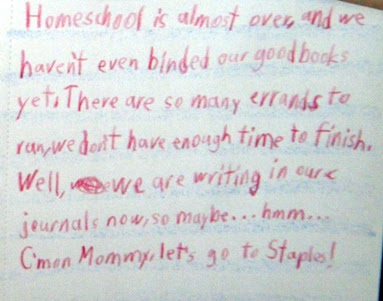 Homeschool is almost over, and we
haven't even binded our good books
yet. There are so many errands to
run, we don't have enough time to finish.
Well, we are writing in our
journals now, so maybe... hmm...
C'mon Mommy, let's go to Staples!